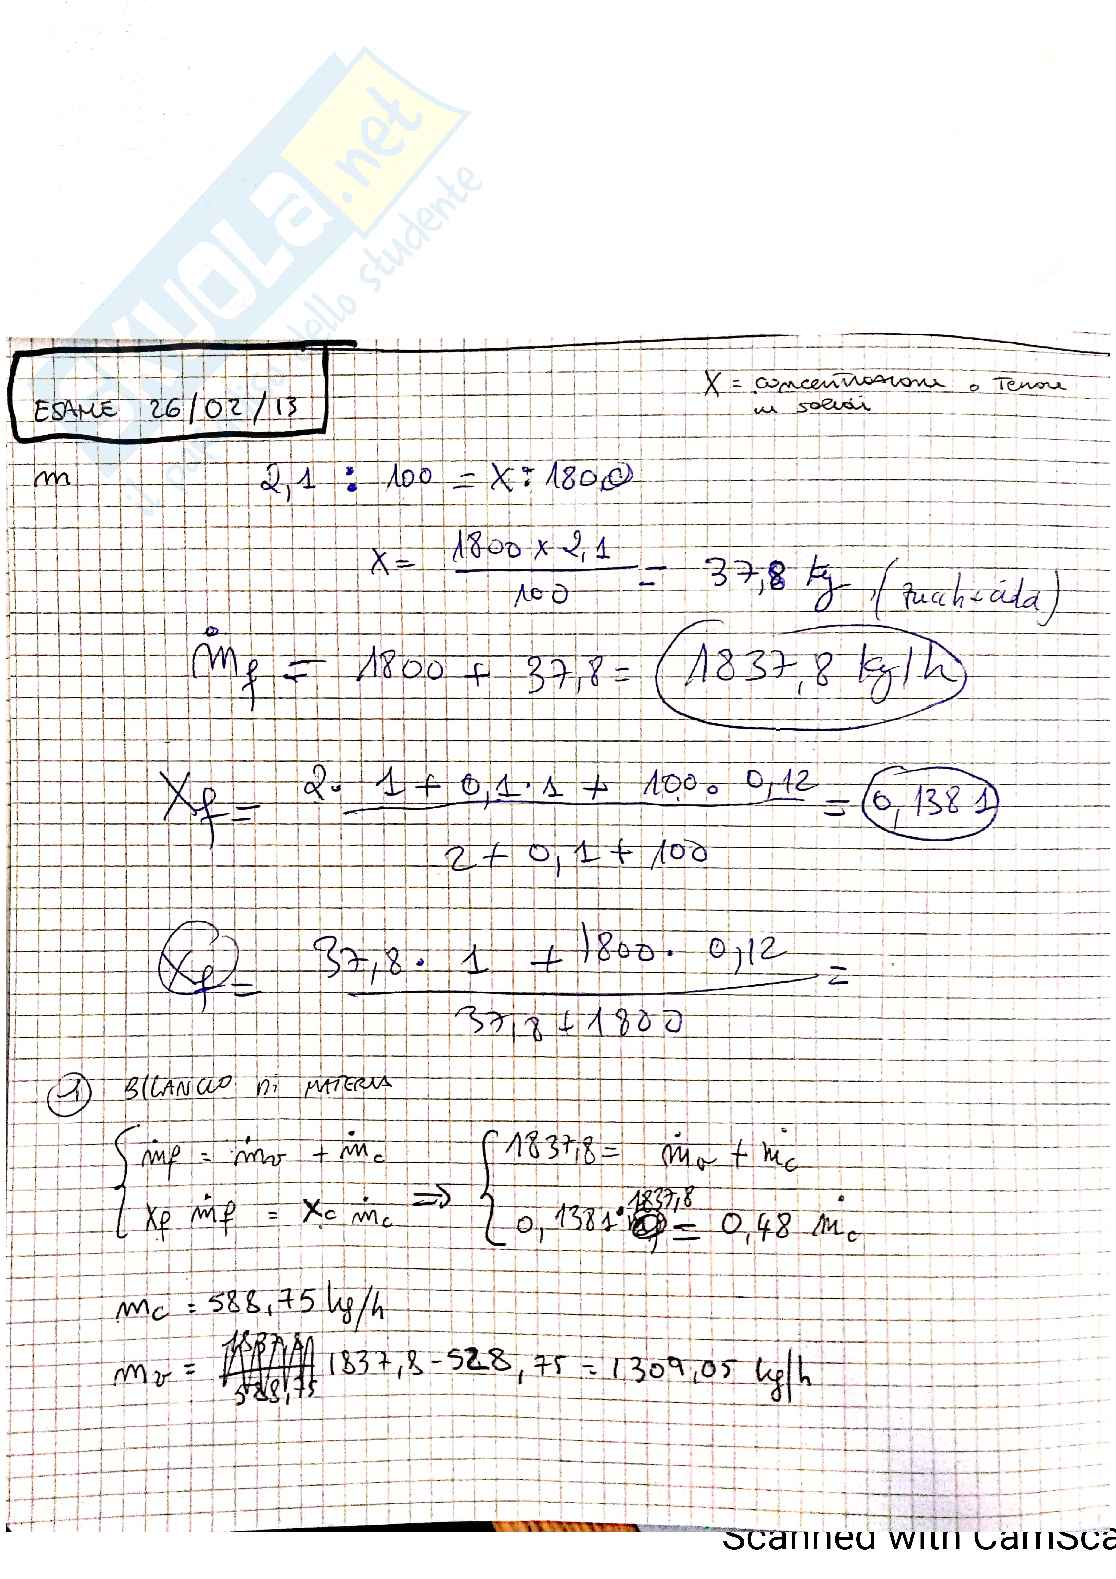 SKUOLA.net
il portale dello studente
ESAME 26/02/13
X = concentrazione o Tenore
in solidi
m 2,1 : 100 = X : 1800
X = 1800 x 2,1 / 100 = 37,8 kg (zucch + cida)
ṁf = 1800 + 37,8 = 1837,8 kg/h
Xf = 2 · 1 + 0,1 · 1 + 100 · 0,12 / 2 + 0,1 + 100 = 0,1381
Xf = 37,8 · 1 + 1800 · 0,12 / 37,8 + 1800 =
1 BILANCIO DI MATERIA
ṁf = ṁv + ṁc 1837,8 = ṁv + ṁc
Xf ṁf = Xc ṁc => 0,1381 · 1837,8 = 0,48 ṁc
mc = 588,75 kg/h
mv = 1837,8 - 528,75 = 1309,05 kg/h
Scanned with CamSca